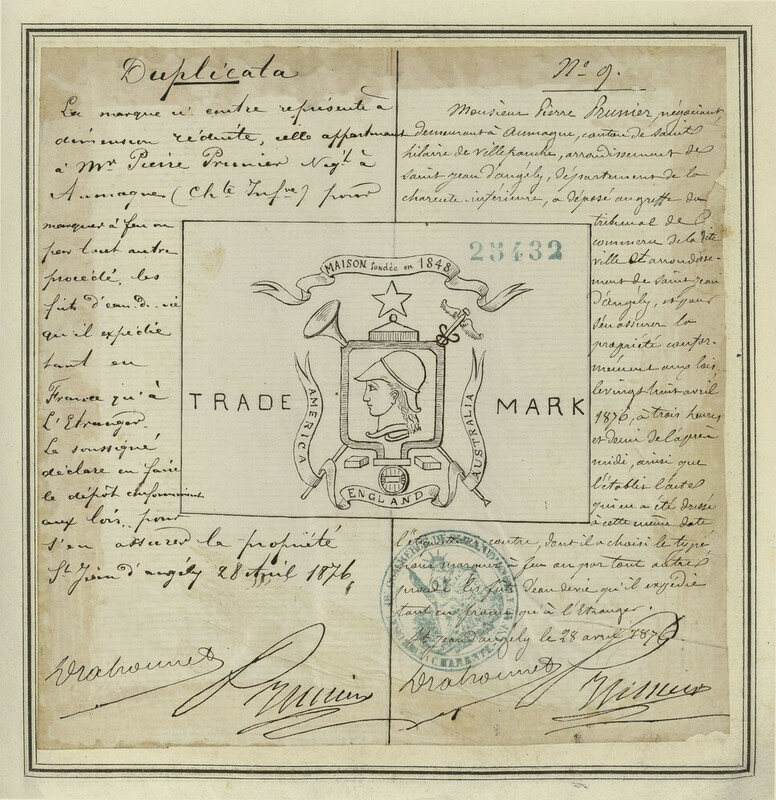 Duplicata
La marque ci contre représente à
dimension réduite, celle appartenant
à Mr. Pierre Prunier Negt. à
Aumagne (Chte Infre) pour
marquer à feu ou
par tout autre
procédé, les
futs d'eau-de-vie
qu'il expédie
tant en
France qu'à
L'Etranger.
Le soussigné
déclare en faire
le dépôt conformément
aux lois, pour
s'en assurer la propriété
St Jean d'angély 28 Avril 1876
Prunier
No 9.
Monsieur Pierre Prunier, négociant,
demeurant à Aumagne, canton de Saint
hilaire de Villefranche, arrondissement de
Saint Jean d'angély, département de la
charente inférieure, a déposé au greffe du
tribunal de
commerce de la dite
ville et arrondisse-
ment de Saint Jean
d'Angély, et pour
s'en assurer la
propriété confor-
mément aux lois,
le vingt huit avril
1876, à trois heures
et demi de l'après
midi, ainsi que
l'établit l'acte
qui en a été dressé
à cette même date
contre, dont il a choisi le type
pour marquer à feu ou par tout autre
procédé les futs d'eau de vie qu'il expédie
tant en france qu'à l'Etranger.
St Jean d'angély le 28 avril 1876
Prunier
25432
MAISON fondée en 1848
TRADE MARK
AMERICA
AUSTRALIA
ENGLAND